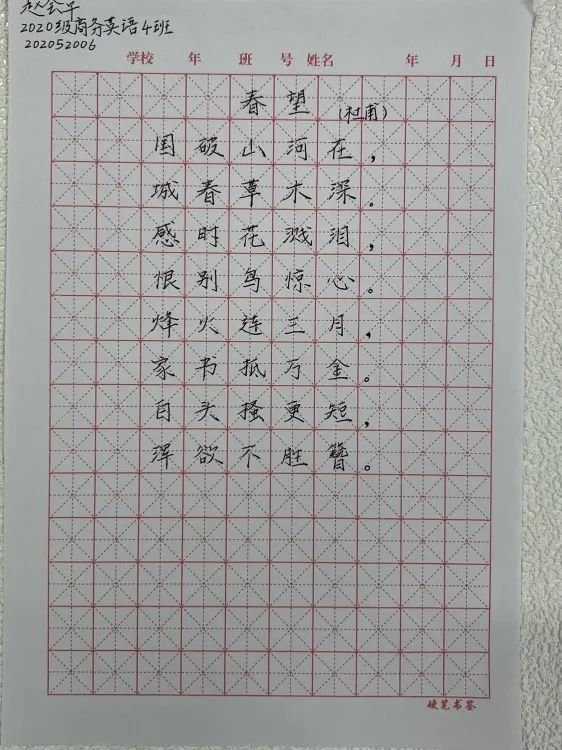 2020级商务英语4班
202052006
学校 年 班 号 姓名 年 月 日
春望(杜甫)
国破山河在，
城春草木深。
感时花溅泪，
恨别鸟惊心。
烽火连三月，
家书抵万金。
白头搔更短，
浑欲不胜簪。
硬笔书签